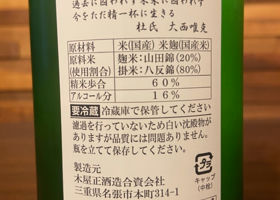 過去に囚われず未来に囚われず
今をただ精一杯に生きる
杜氏 大西唯克
原材料 米(国産) 米麹(国産米)
原料米 麹米:山田錦(20%)
(使用割合) 掛米:八反錦(80%)
精米歩合 60%
アルコール分 16%
要冷蔵 冷蔵庫で保管してください
濾過を行っていないため白い沈殿物が
ありますが品質には問題ありません。
瓶を立てて保存してください。
製造元
木屋正酒造合資会社
三重県名張市本町314-1
プラ
キャップ
(中栓)